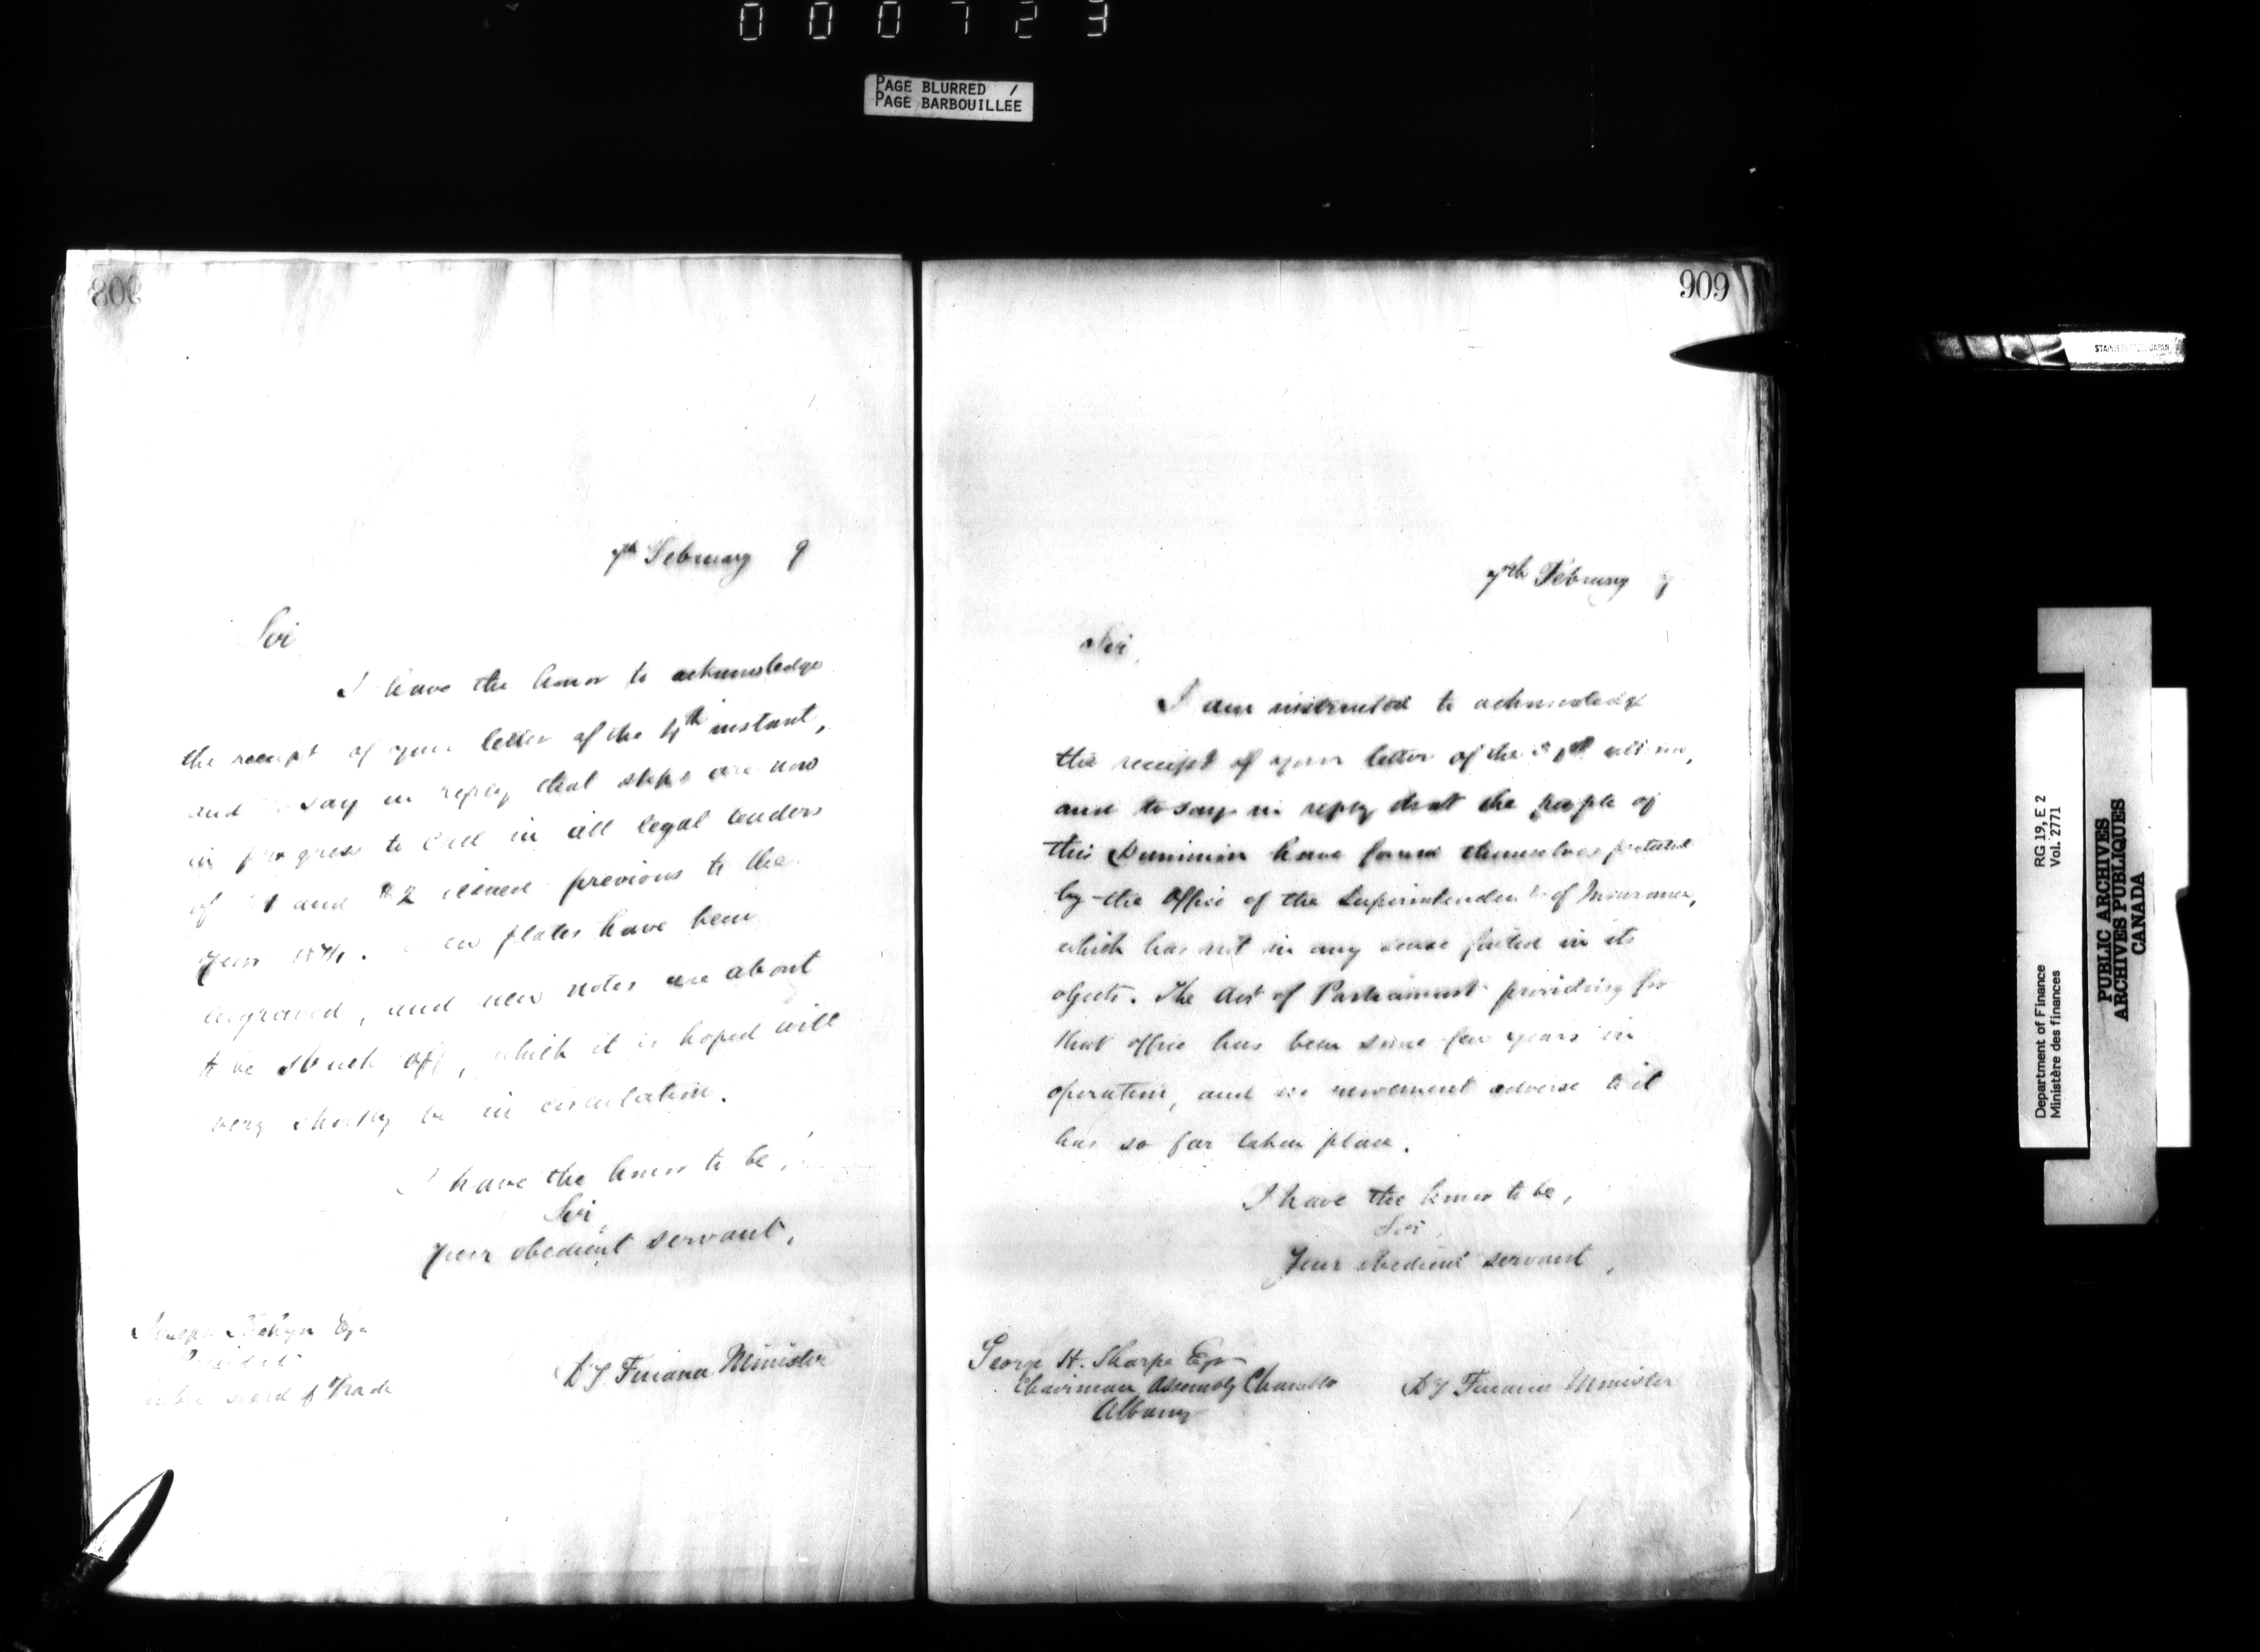 000723
PAGE BLURRED
PAGE BARBOUILLÉE
908
7th February 9
Sir,
I have the honor to acknowledge
the receipt of your letter of the 4th instant,
and to say in reply that steps are now
in progress to call in all legal tenders
of $1 and $2 issued previous to the
year . New plates have been
engraved, and new notes are about
to be struck off, which it is hoped will
very shortly be in circulation.
I have the honor to be,
Sir,
Your obedient servant,
Joseph Esqr
President
Board of Trade
Dy Finance Minister
909
7th February 9
Sir,
I am instructed to acknowledge
the receipt of your letter of the ultimo,
and to say in reply that the people of
this Dominion have found themselves protected
by the Office of the Superintendent of Insurance,
which has not in any sense failed in its
objects. The Act of Parliament providing for
that office has been some few years in
operation, and no movement adverse to it
has so far taken place.
I have the honor to be,
Sir,
Your obedient servant,
George H. Sharpe Esqr
Chairman Assembly Chamber
Albany
Dy Finance Minister
STAINLESS JAPAN
Department of Finance RG 19, E 2
Ministère des finances Vol. 2771
PUBLIC ARCHIVES
ARCHIVES PUBLIQUES
CANADA